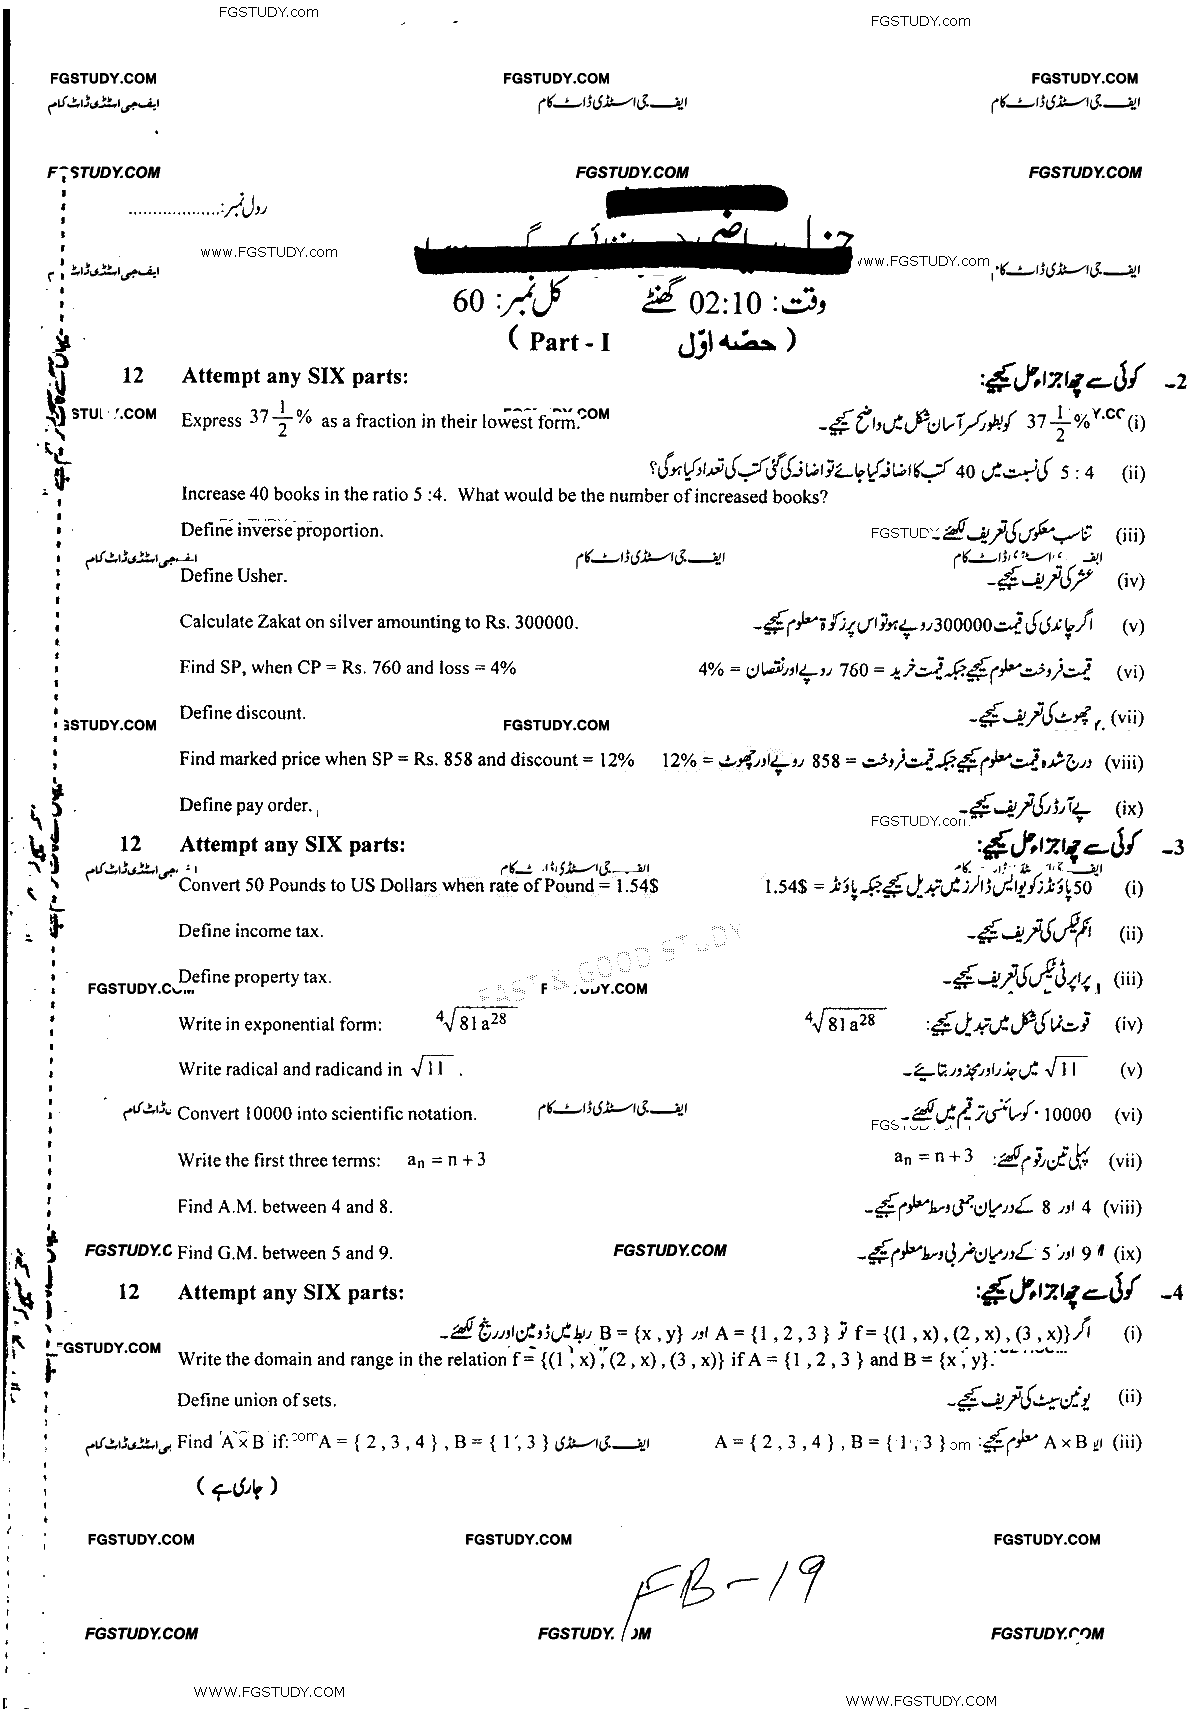 FGSTUDY.COM
FGSTUDY.com
FGSTUDY.COM FGSTUDY.COM FGSTUDY.COM
ایف جی اسٹڈی ڈاٹ کام ایف جی اسٹڈی ڈاٹ کام ایف جی اسٹڈی ڈاٹ کام
FGSTUDY.COM FGSTUDY.COM FGSTUDY.COM
رول نمبر: ....................
www.FGSTUDY.com www.FGSTUDY.com
ایف جی اسٹڈی ڈاٹ ایف جی اسٹڈی ڈاٹ کام
وقت: 02:10 گھنٹے کل نمبر: 60
( Part - I حصّہ اوّل )
12 Attempt any SIX parts: کوئی سے چھ اجزاء حل کیجئے: 2-
Express 37 1/2 % as a fraction in their lowest form. 37 1/2 % کو بطور کسر آسان شکل میں واضح کیجئے۔ (i)
5 : 4 کی نسبت میں 40 کتب کا اضافہ کیا جائے تو اضافہ کی گئی کتب کی تعداد کیا ہو گی؟ (ii)
Increase 40 books in the ratio 5 :4. What would be the number of increased books?
Define inverse proportion. تناسب معکوس کی تعریف لکھئے۔ (iii)
ایف جی اسٹڈی ڈاٹ کام ایف جی اسٹڈی ڈاٹ کام
Define Usher. عشر کی تعریف کیجئے۔ (iv)
Calculate Zakat on silver amounting to Rs. 300000. اگر چاندی کی قیمت 300000 روپے ہو تو اس پر زکوٰۃ معلوم کیجئے۔ (v)
Find SP, when CP = Rs. 760 and loss = 4% قیمت فروخت معلوم کیجئے جبکہ قیمت خرید = 760 روپے اور نقصان = 4% (vi)
Define discount. چھوٹ کی تعریف کیجئے۔ (vii)
GSTUDY.COM FGSTUDY.COM
Find marked price when SP = Rs. 858 and discount = 12% درج شدہ قیمت معلوم کیجئے جبکہ قیمت فروخت = 858 روپے اور چھوٹ = 12% (viii)
Define pay order. پے آرڈر کی تعریف کیجئے۔ (ix)
FGSTUDY.com
12 Attempt any SIX parts: کوئی سے چھ اجزاء حل کیجئے: 3-
Convert 50 Pounds to US Dollars when rate of Pound = 1.54$ 50 پاؤنڈز کو یو ایس ڈالرز میں تبدیل کیجئے جبکہ پاؤنڈ = 1.54$ (i)
Define income tax. انکم ٹیکس کی تعریف کیجئے۔ (ii)
FAST & GOOD STUDY
Define property tax. پراپرٹی ٹیکس کی تعریف کیجئے۔ (iii)
Write in exponential form: ⁴√81a²⁸ ⁴√81a²⁸ قوت نما کی شکل میں تبدیل کیجئے: (iv)
Write radical and radicand in √11 . √11 میں جذر اور مجذور بتائیے۔ (v)
Convert 10000 into scientific notation. ایف جی اسٹڈی ڈاٹ کام 10000 کو سائنسی ترقیم میں لکھئے۔ (vi)
Write the first three terms: aₙ = n + 3 پہلی تین رقوم لکھئے: aₙ = n + 3 (vii)
Find A.M. between 4 and 8. 4 اور 8 کے درمیان جمعی وسط معلوم کیجئے۔ (viii)
Find G.M. between 5 and 9. FGSTUDY.COM 9 اور 5 کے درمیان ضربی وسط معلوم کیجئے۔ (ix)
12 Attempt any SIX parts: کوئی سے چھ اجزاء حل کیجئے: 4-
اگر f = {(1 , x) , (2 , x) , (3 , x)} تو A = {1 , 2 , 3 } اور B = {x , y} ربط میں ڈومین اور رینج لکھئے۔ (i)
Write the domain and range in the relation f = {(1 , x) , (2 , x) , (3 , x)} if A = {1 , 2 , 3 } and B = {x , y}.
Define union of sets. یونین سیٹ کی تعریف کیجئے۔ (ii)
Find A × B if: A = { 2 , 3 , 4 } , B = { 1 , 3 } ایف جی اسٹڈی A × B معلوم کیجئے: A = { 2 , 3 , 4 } , B = { 1 , 3 } (iii)
( جاری ہے )
FGSTUDY.COM FGSTUDY.COM FGSTUDY.COM
FB-19
FGSTUDY.COM FGSTUDY. OM FGSTUDY.COM
WWW.FGSTUDY.COM
WWW.FGSTUDY.COM